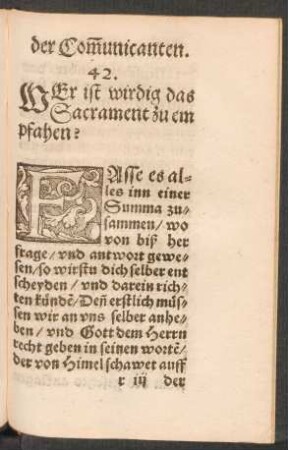 der Com̄unicanten.
42.
WEr ist wirdig das
Sacrament zu em
pfahen?
FAsse es al⸗
les inn einer
Summa zu⸗
sammen/ wo
von biß her
frage/ vnd antwort gewe⸗
sen/ so wirstu dich selber ent
scheyden / vnd darein rich⸗
ten kündẽ/ Deñ erstlich müs⸗
sen wir an vns selber anhe⸗
ben/ vnd Gott dem Herrn
recht geben in seinen wortẽ/
der von Himel schawet auff
r iij der